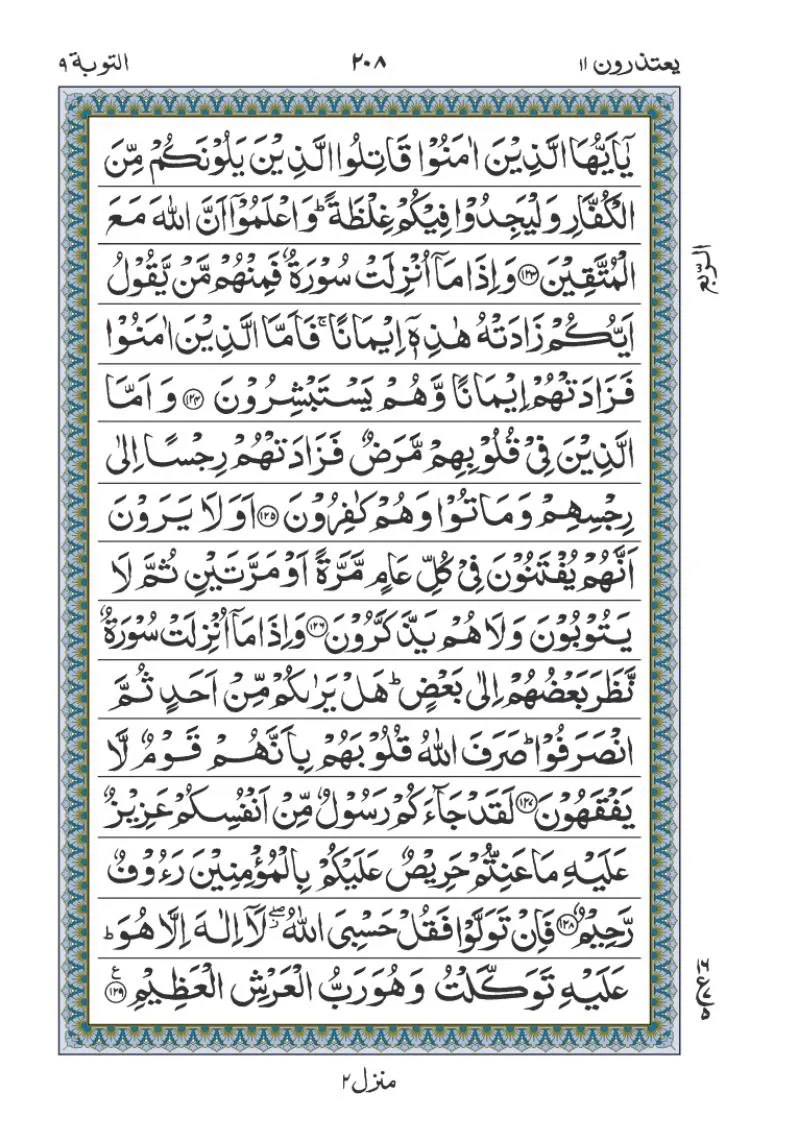 یعتذرون ۱۱ ۲۰۸ التوبة ۹
يٰۤاَيُّهَا الَّذِيْنَ اٰمَنُوْا قَاتِلُوا الَّذِيْنَ يَلُوْنَكُمْ مِّنَ
الْكُفَّارِ وَلْيَجِدُوْا فِيْكُمْ غِلْظَةً ؕ وَاعْلَمُوْۤا اَنَّ اللّٰهَ مَعَ
الْمُتَّقِيْنَ ﴿۱۲۳﴾ وَاِذَا مَاۤ اُنْزِلَتْ سُوْرَةٌ فَمِنْهُمْ مَّنْ يَّقُوْلُ
الربع
اَيُّكُمْ زَادَتْهُ هٰذِهٖۤ اِيْمَانًا ۚ فَاَمَّا الَّذِيْنَ اٰمَنُوْا
فَزَادَتْهُمْ اِيْمَانًا وَّهُمْ يَسْتَبْشِرُوْنَ ﴿۱۲۴﴾ وَاَمَّا
الَّذِيْنَ فِيْ قُلُوْبِهِمْ مَّرَضٌ فَزَادَتْهُمْ رِجْسًا اِلٰى
رِجْسِهِمْ وَمَاتُوْا وَهُمْ كٰفِرُوْنَ ﴿۱۲۵﴾ اَوَلَا يَرَوْنَ
اَنَّهُمْ يُفْتَنُوْنَ فِيْ كُلِّ عَامٍ مَّرَّةً اَوْ مَرَّتَيْنِ ثُمَّ لَا
يَتُوْبُوْنَ وَلَا هُمْ يَذَّكَّرُوْنَ ﴿۱۲۶﴾ وَاِذَا مَاۤ اُنْزِلَتْ سُوْرَةٌ
نَّظَرَ بَعْضُهُمْ اِلٰى بَعْضٍ ؕ هَلْ يَرٰىكُمْ مِّنْ اَحَدٍ ثُمَّ
انْصَرَفُوْا ؕ صَرَفَ اللّٰهُ قُلُوْبَهُمْ بِاَنَّهُمْ قَوْمٌ لَّا
يَفْقَهُوْنَ ﴿۱۲۷﴾ لَقَدْ جَآءَكُمْ رَسُوْلٌ مِّنْ اَنْفُسِكُمْ عَزِيْزٌ
عَلَيْهِ مَا عَنِتُّمْ حَرِيْصٌ عَلَيْكُمْ بِالْمُؤْمِنِيْنَ رَءُوْفٌ
رَّحِيْمٌ ﴿۱۲۸﴾ فَاِنْ تَوَلَّوْا فَقُلْ حَسْبِيَ اللّٰهُ لَاۤ اِلٰهَ اِلَّا هُوَ ؕ
عَلَيْهِ تَوَكَّلْتُ وَهُوَ رَبُّ الْعَرْشِ الْعَظِيْمِ ﴿۱۲۹﴾ ع
منزل ۲